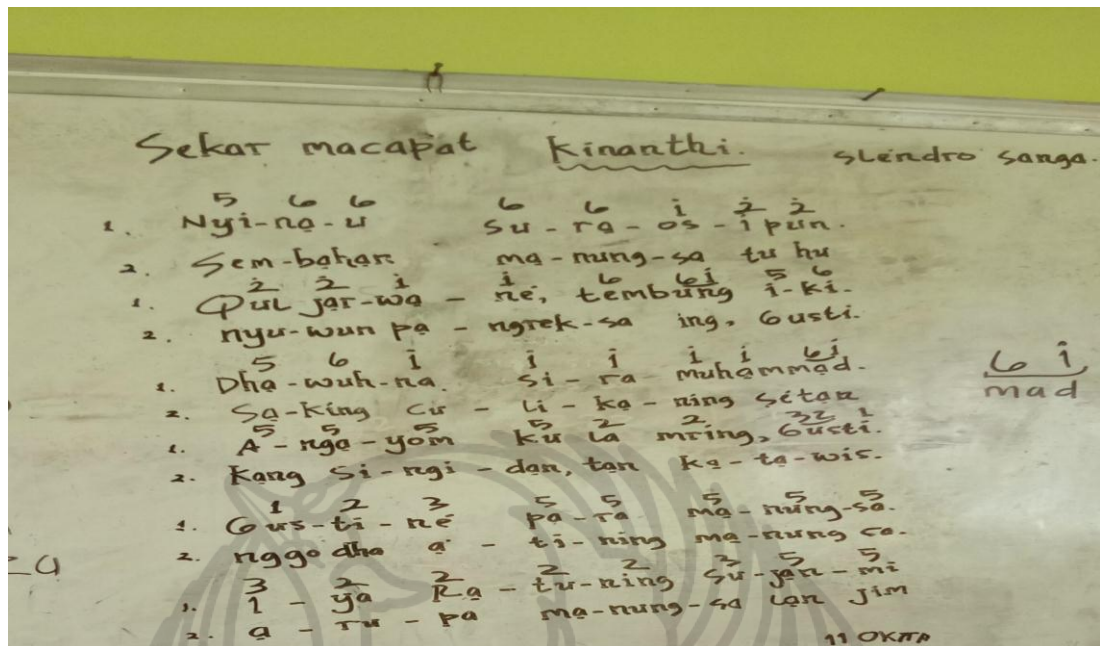 Sekar macapat Kinanthi. Slendro sanga.
5 6 6 6 6 i̇ 2̇ 2̇
1. Nyi-nạ-u su-rạ-os-ipun.
2. Sem-bahan mạ-nung-sa tu hu
2̇ 2̇ i̇ i̇ 6 6i̇ 5 6
1. Qul jar-wạ-né, tembung i-ki.
2. nyu-wun pạ-ngrek-sa ing, Gusti.
5 6 i̇ i̇ i̇ i̇ i̇ 6i̇
1. Dhạ-wuh-na. si-ra muhammad.
6 i̇
mad
2. Sạ-king cu-li-kạ-ning sétan
5 5 5 5 2 2 32 1
1. A-ngạ-yom ku la mring, Gusti.
2. Kang si-ngi-dan, tan kạ-tạ-wis.
1 2 3 5 5 5 5 5
1. Gus-ti-né pạ-rạ mạ-nung-sạ.
2. nggo dha ạ-ti-ning mạ-nung sa.
3 2 2 2 2 3 5 5
1. I-yạ Rạ-tu-ning su-jan-mi
2. ạ-ru-pa mạ-nung-sạ lan jim